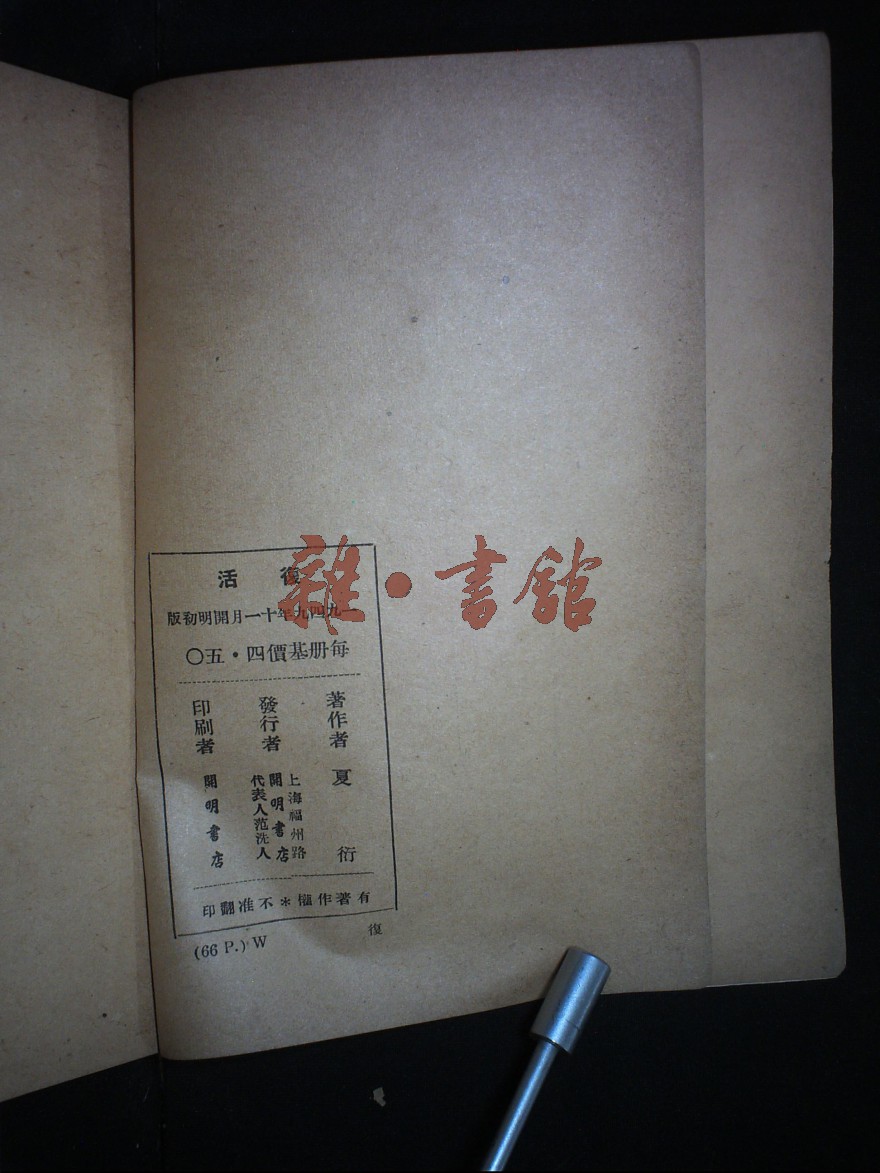 復活
一九四九年十一月開明初版
每册基價四·五〇
著作者 夏衍
發行者
上海福州路
開明書店
代表人范洗人
印刷者 開明書店
有著作權＊不准翻印
(66 P.) W
復
雜·書館